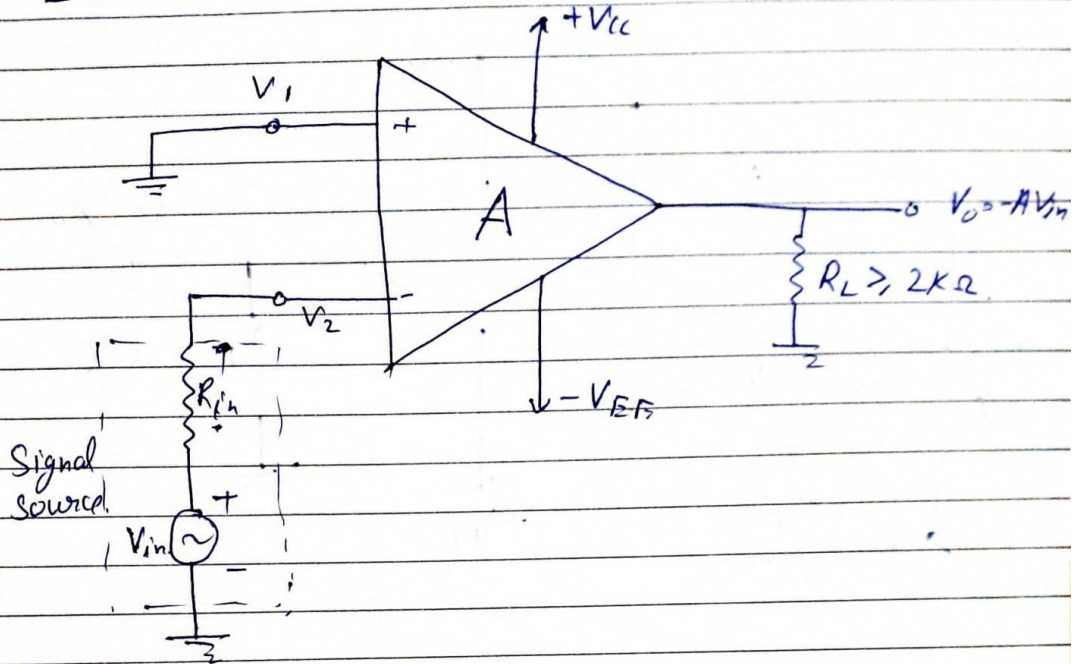 +Vcc
V1
+
A
Vo = -AVin
RL ≥ 2KΩ
-
V2
Rin
-VEE
Signal
source
+
Vin
~
-